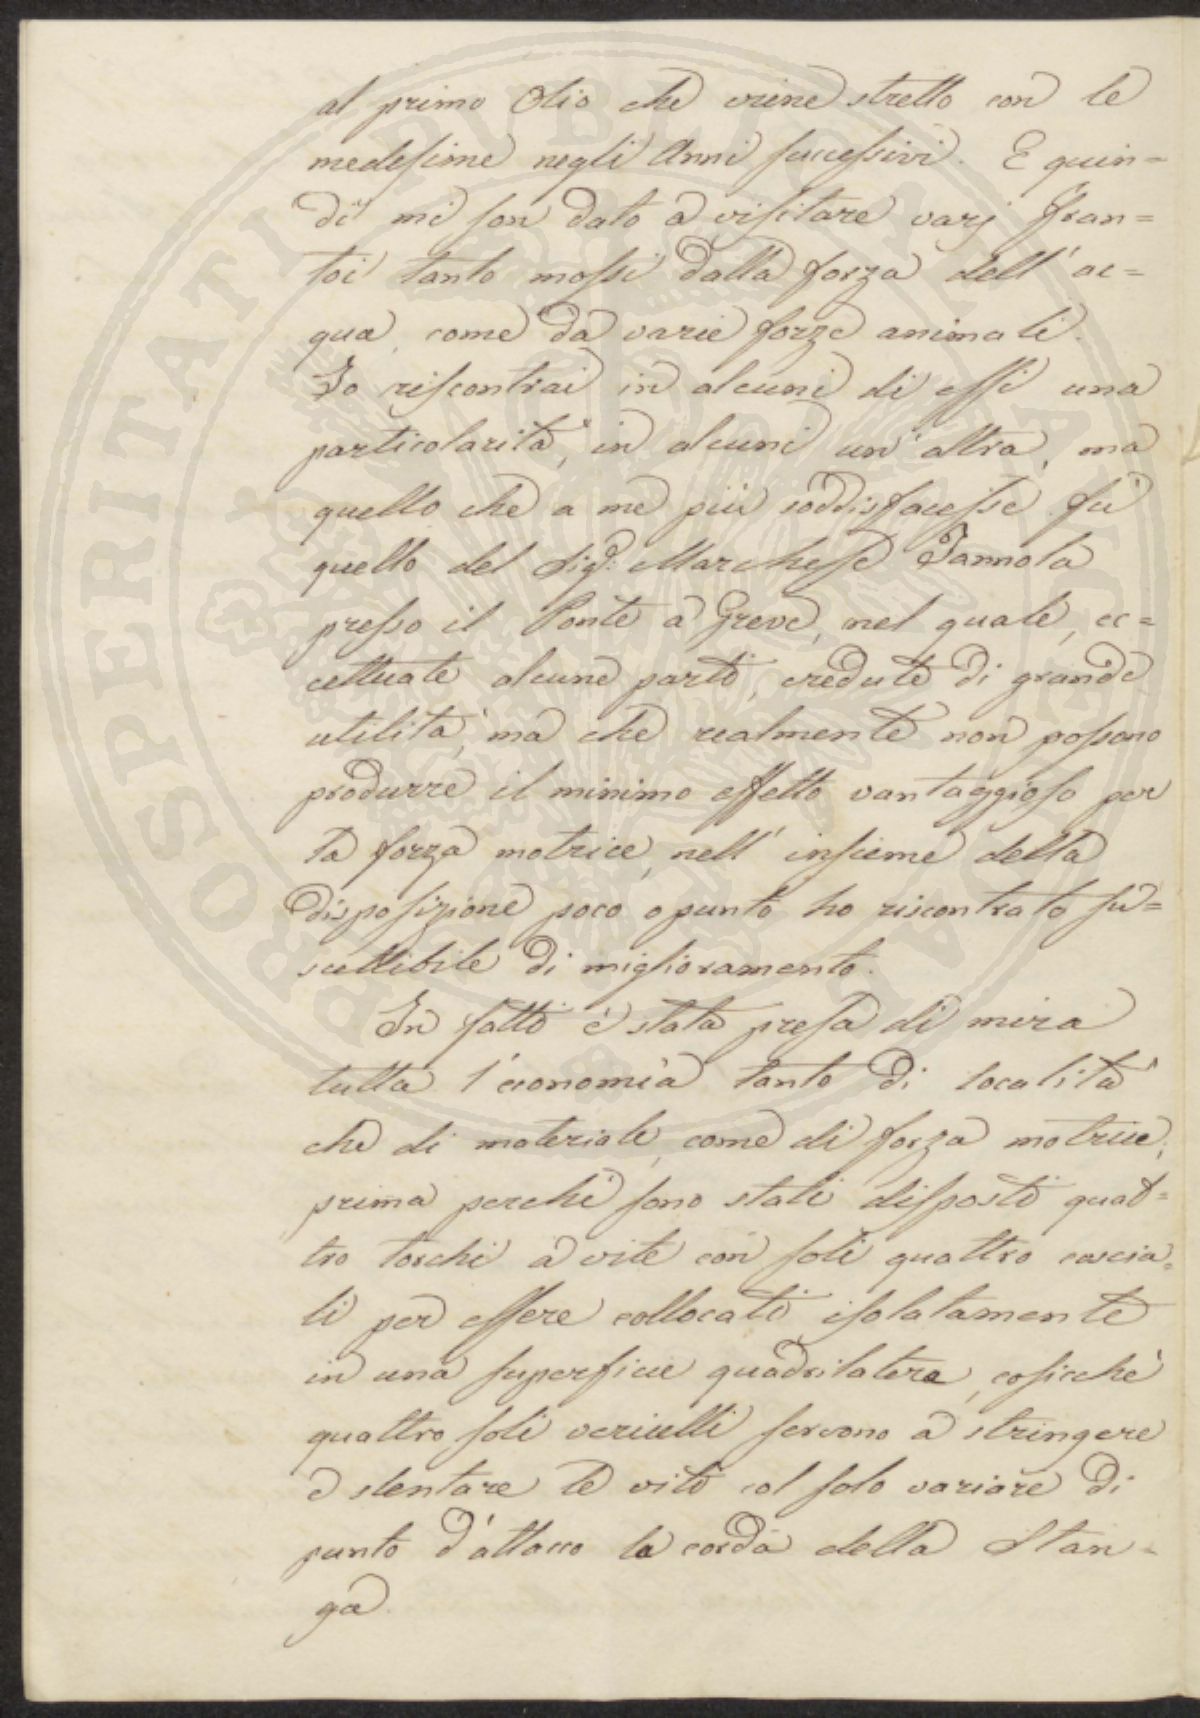 al primo Olio che viene stretto con le
medesime negli Anni successivi. E quin=
di mi son dato a visitare varj Fran=
toi tanto mossi dalla forza dell'ac=
qua, come da varie forze animali.
Io riscontrai in alcuni di essi una
particolarità, in alcuni un'altra, ma
quello che a me più soddisfacesse fù
quello del Sig.r Marchese
presso il Ponte a Greve, nel quale, ec=
cettuate alcune parti, credute di grande
utilità, ma che realmente non possono
produrre il minimo effetto vantaggioso per
la forza motrice, nell'insieme della
disposizione poco o punto ho riscontrato su=
scettibile di miglioramento.
In fatti è stata presa di mira
tutta l'economia tanto di località
che di materiale, come di forza motrice;
prima perchè sono stati disposti quat=
tro torchi a vite con soli quattro coscia=
li per essere collocati isolatamente
in una superficie quadrilatera, cosicchè
quattro soli vericelli servono a stringere
e stentare le viti col solo variare di
punto d'attacco la corda della Stan=
ga.
PROSPERITATI PUBLICAE